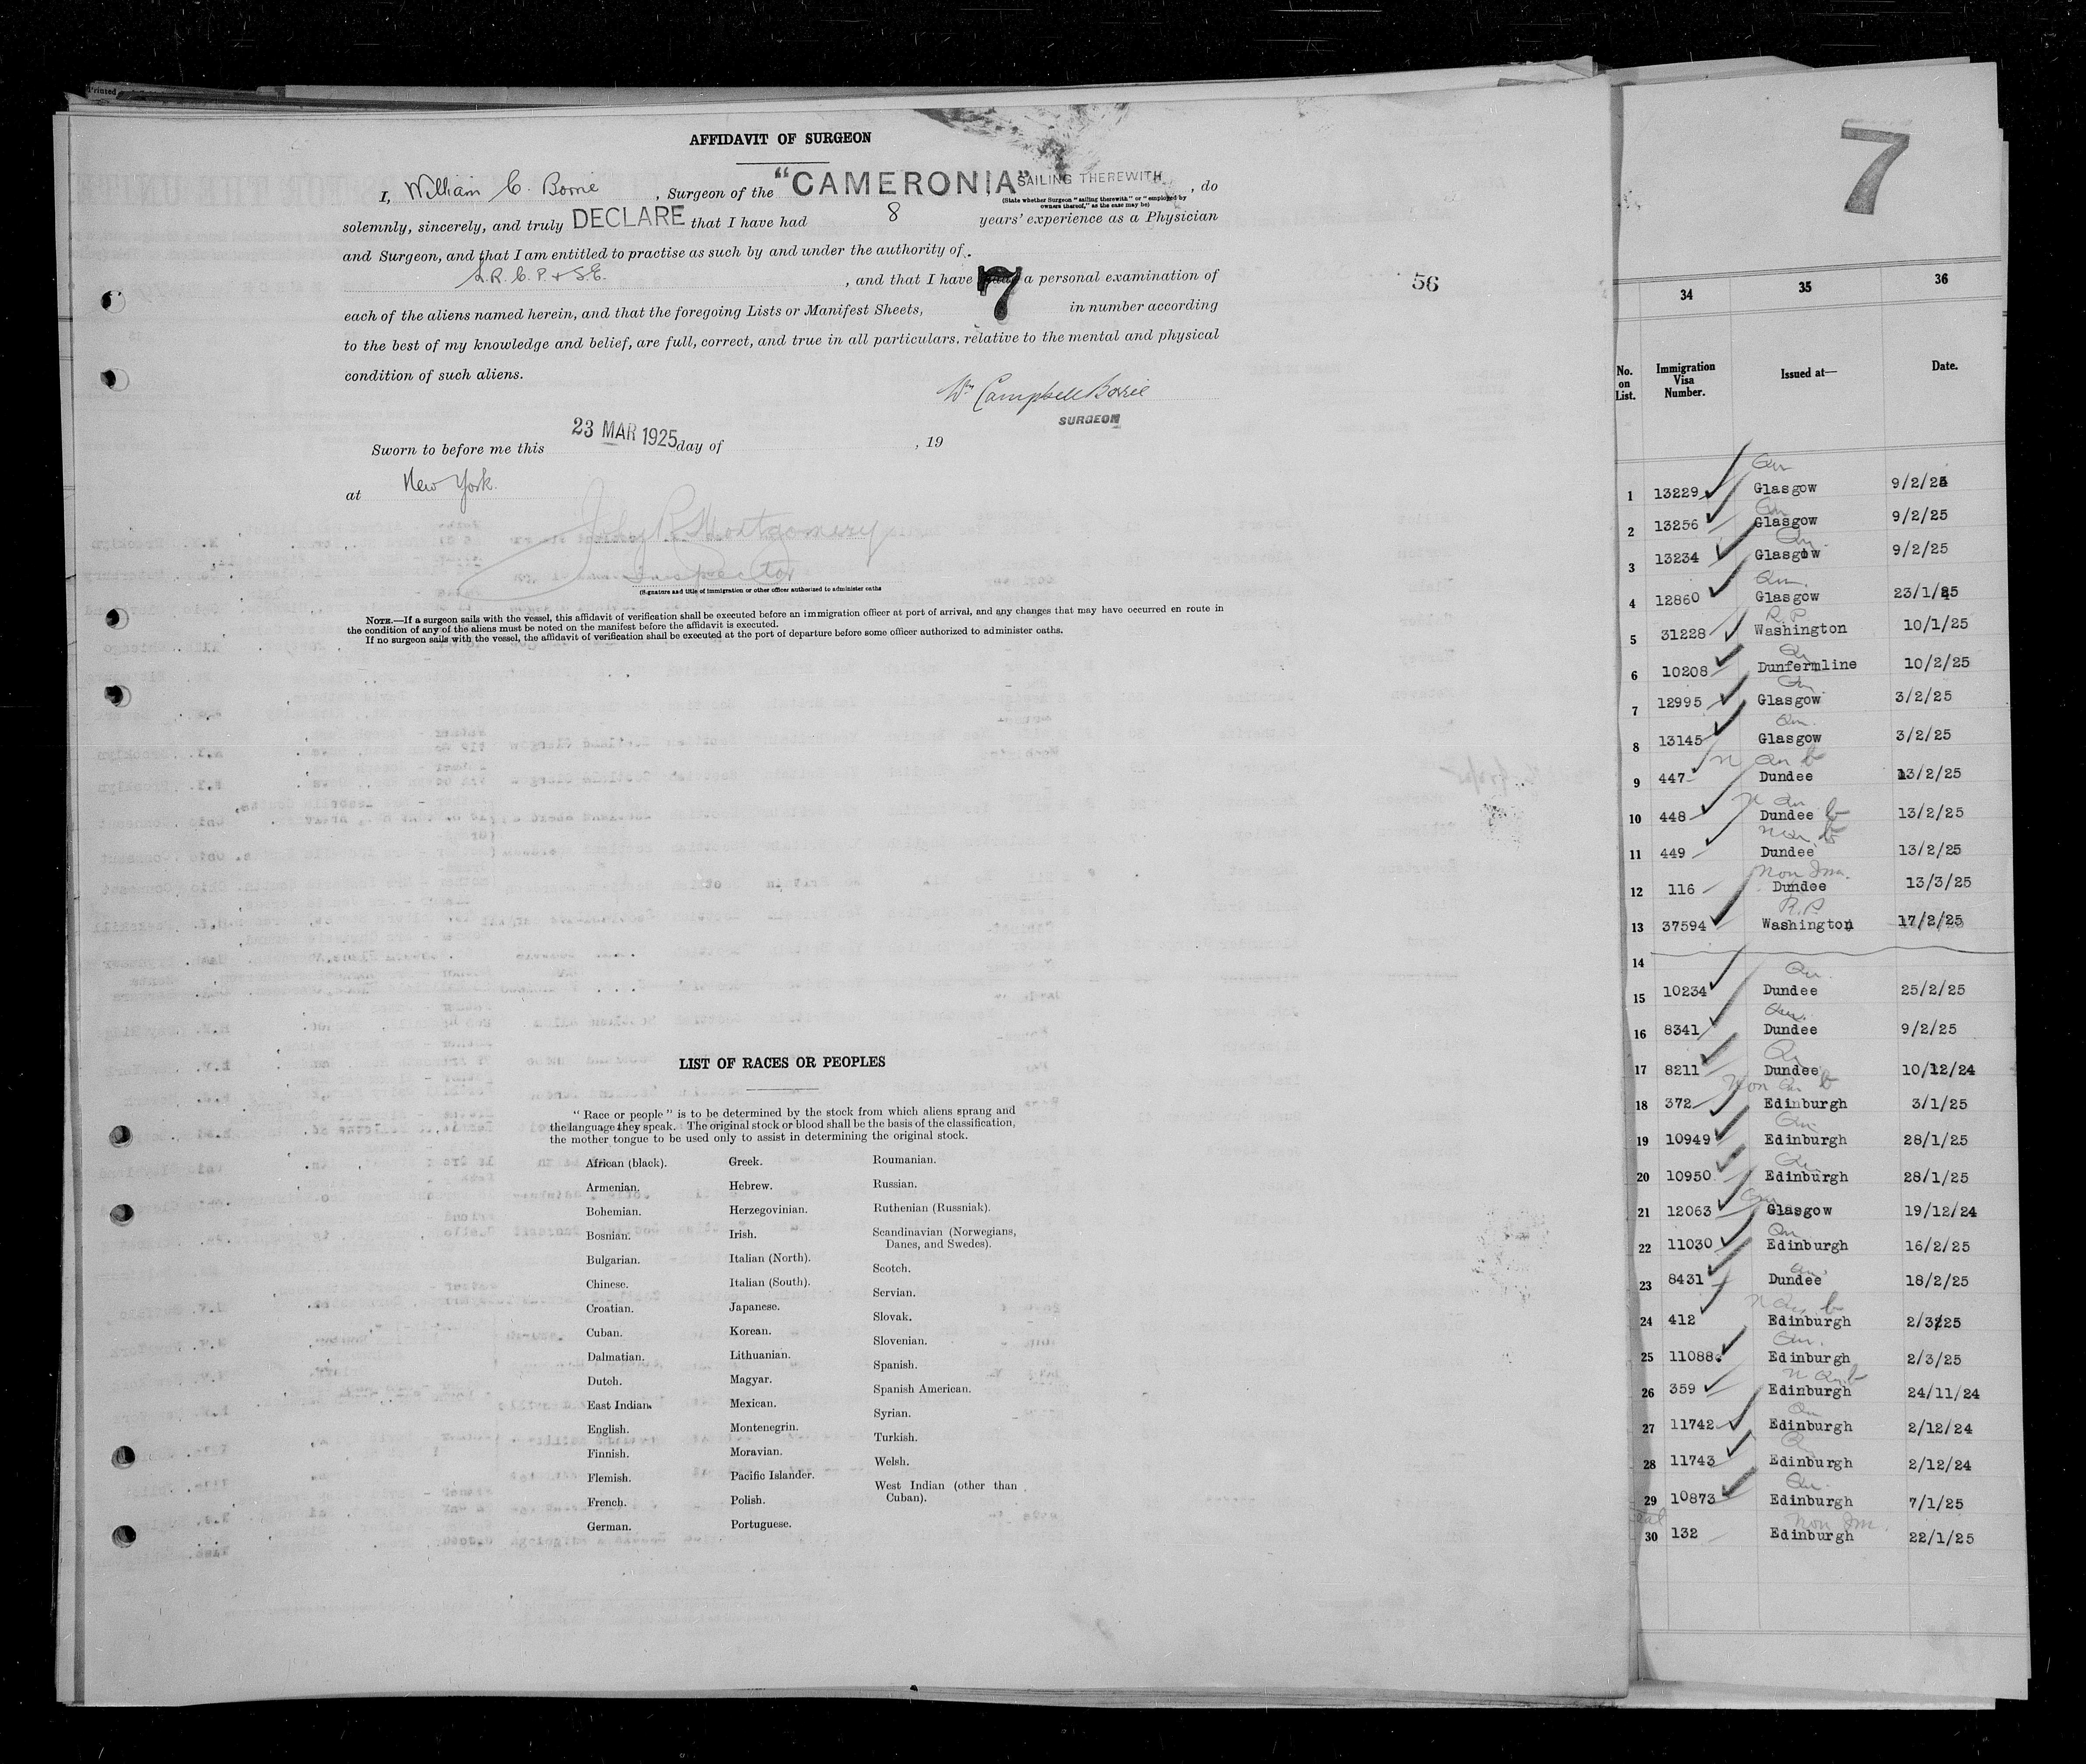 Printed
AFFIDAVIT OF SURGEON
I, William C. Borrie, Surgeon of the "CAMERONIA" SAILING THEREWITH, do
(State whether Surgeon "sailing therewith" or "employed by
owners thereof," as the case may be)
solemnly, sincerely, and truly DECLARE that I have had 8 years' experience as a Physician
and Surgeon, and that I am entitled to practise as such by and under the authority of
L.R.C.P. & S.E. , and that I have made a personal examination of
each of the aliens named herein, and that the foregoing Lists or Manifest Sheets, 7 in number according
to the best of my knowledge and belief, are full, correct, and true in all particulars, relative to the mental and physical
condition of such aliens.
Wm Campbell Borrie
SURGEON
Sworn to before me this 23 MAR 1925 day of , 19
at New York.
John R Montgomery
Inspector
(Signature and title of immigration or other officer authorized to administer oaths
NOTE.—If a surgeon sails with the vessel, this affidavit of verification shall be executed before an immigration officer at port of arrival, and any changes that may have occurred en route in
the condition of any of the aliens must be noted on the manifest before the affidavit is executed.
If no surgeon sails with the vessel, the affidavit of verification shall be executed at the port of departure before some officer authorized to administer oaths.
56
LIST OF RACES OR PEOPLES
" Race or people " is to be determined by the stock from which aliens sprang and
the language they speak. The original stock or blood shall be the basis of the classification,
the mother tongue to be used only to assist in determining the original stock.
African (black).
Armenian.
Bohemian.
Bosnian.
Bulgarian.
Chinese.
Croatian.
Cuban.
Dalmatian.
Dutch.
East Indian.
English.
Finnish.
Flemish.
French.
German.
Greek.
Hebrew.
Herzegovinian.
Irish.
Italian (North).
Italian (South).
Japanese.
Korean.
Lithuanian.
Magyar.
Mexican.
Montenegrin.
Moravian.
Pacific Islander.
Polish.
Portuguese.
Roumanian.
Russian.
Ruthenian (Russniak).
Scandinavian (Norwegians,
Danes, and Swedes).
Scotch.
Servian.
Slovak.
Slovenian.
Spanish.
Spanish American.
Syrian.
Turkish.
Welsh.
West Indian (other than
Cuban).
7
34 35 36
No. on List. Immigration Visa Number. Issued at— Date.
Qu
1 13229 Glasgow 9/2/25
Qu
2 13256 Glasgow 9/2/25
Qu
3 13234 Glasgow 9/2/25
Qu.
4 12860 Glasgow 23/1/25
R.P.
5 31228 Washington 10/1/25
Qu
6 10208 Dunfermline 10/2/25
Qu.
7 12995 Glasgow 3/2/25
Qu.
8 13145 Glasgow 3/2/25
N Qu b
9 447 Dundee 13/2/25
N Qu b
10 448 Dundee 13/2/25
N Qu b
11 449 Dundee 13/2/25
Non Imm.
12 116 Dundee 13/3/25
R.P.
13 37594 Washington 17/2/25
14
Qu.
15 10234 Dundee 25/2/25
Qu.
16 8341 Dundee 9/2/25
Qu
17 8211 Dundee 10/12/24
Non Qu b
18 372 Edinburgh 3/1/25
Qu
19 10949 Edinburgh 28/1/25
Qu
20 10950 Edinburgh 28/1/25
Qu
21 12063 Glasgow 19/12/24
Qu
22 11030 Edinburgh 16/2/25
Qu.
23 8431 Dundee 18/2/25
N Qu b
24 412 Edinburgh 2/3/25
Qu.
25 11088 Edinburgh 2/3/25
N Qu b
26 359 Edinburgh 24/11/24
Qu
27 11742 Edinburgh 2/12/24
Qu
28 11743 Edinburgh 2/12/24
Qu.
29 10873 Edinburgh 7/1/25
Non Im.
30 132 Edinburgh 22/1/25